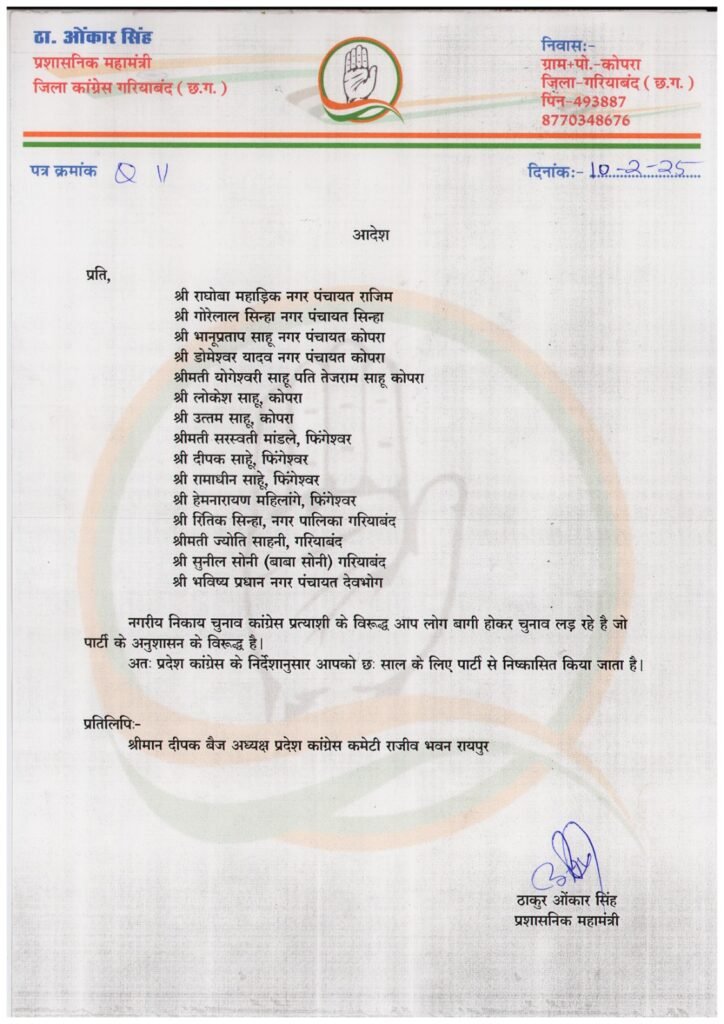 ठा. ओंकार सिंह
प्रशासनिक महामंत्री
जिला कांग्रेस गरियाबंद ( छ.ग. )
निवास:-
ग्राम+पो.-कोपरा
जिला-गरियाबंद ( छ.ग. )
पिन-493887
8770348676
पत्र क्रमांक Q 11
दिनांक:- 10-2-25
आदेश
प्रति,
श्री राघोबा महाड़िक नगर पंचायत राजिम
श्री गोरेलाल सिन्हा नगर पंचायत सिन्हा
श्री भानूप्रताप साहू नगर पंचायत कोपरा
श्री डोमेश्वर यादव नगर पंचायत कोपरा
श्रीमती योगेश्वरी साहू पति तेजराम साहू कोपरा
श्री लोकेश साहू, कोपरा
श्री उत्तम साहू, कोपरा
श्रीमती सरस्वती मांडले, फिंगेश्वर
श्री दीपक साहू, फिंगेश्वर
श्री रामाधीन साहू, फिंगेश्वर
श्री हेमनारायण महिलांगे, फिंगेश्वर
श्री रितिक सिन्हा, नगर पालिका गरियाबंद
श्रीमती ज्योति साहनी, गरियाबंद
श्री सुनील सोनी (बाबा सोनी) गरियाबंद
श्री भविष्य प्रधान नगर पंचायत देवभोग
नगरीय निकाय चुनाव कांग्रेस प्रत्याशी के विरूद्ध आप लोग बागी होकर चुनाव लड़ रहे है जो
पार्टी के अनुशासन के विरूद्ध है।
अतः प्रदेश कांग्रेस के निर्देशानुसार आपको छः साल के लिए पार्टी से निष्कासित किया जाता है।
प्रतिलिपिः-
श्रीमान दीपक बैज अध्यक्ष प्रदेश कांग्रेस कमेटी राजीव भवन रायपुर
ठाकुर ओंकार सिंह
प्रशासनिक महामंत्री